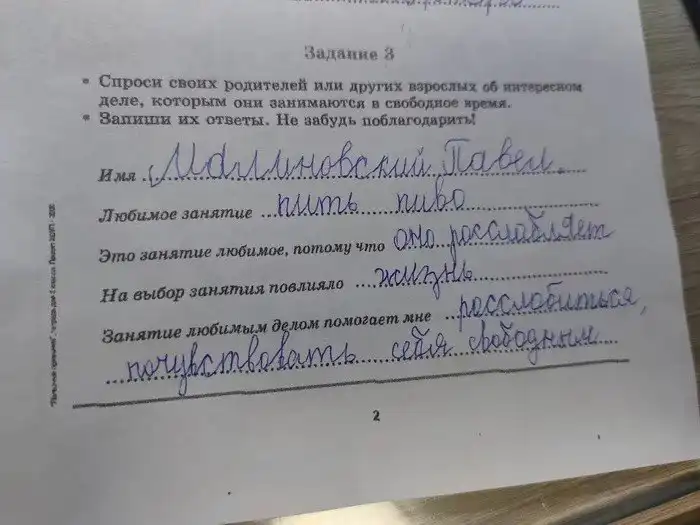 Задание 3
• Спроси своих родителей или других взрослых об интересном
деле, которым они занимаются в свободное время.
• Запиши их ответы. Не забудь поблагодарить!
Имя Малиновский Павел.
Любимое занятие пить пиво
Это занятие любимое, потому что оно росслабляет
На выбор занятия повлияло жизнь
Занятие любимым делом помогает мне росслабиться,
почувствовать себя свободным
2